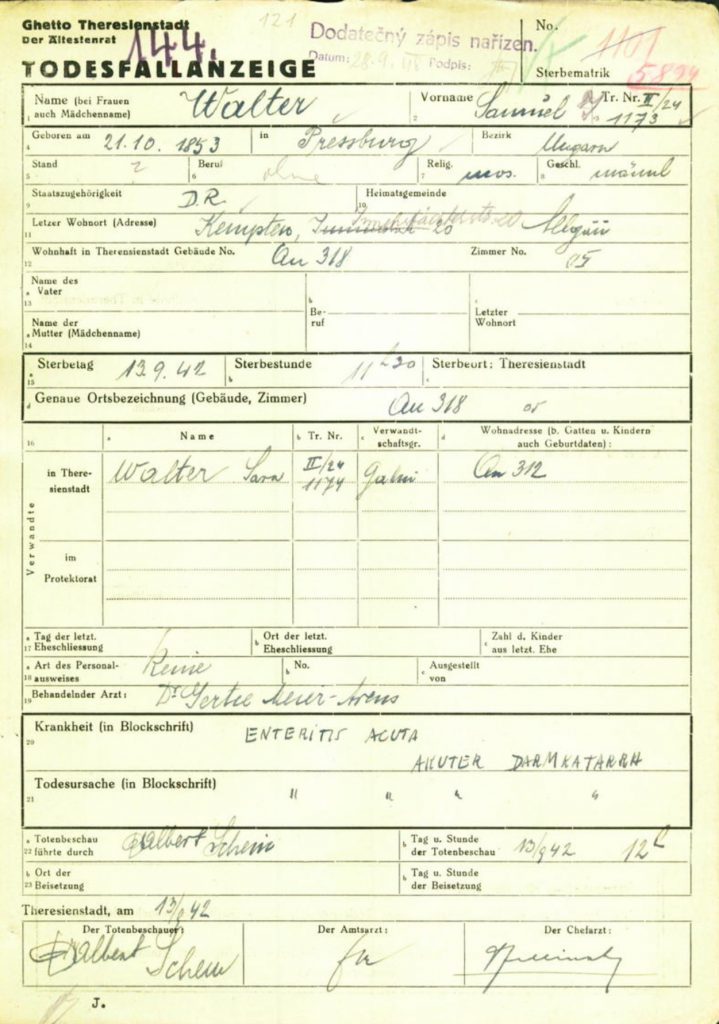 Ghetto Theresienstadt
Der Ältestenrat
144.
121
Dodatečný zápis nařízen.
Datum: 28.9. Podpis:
No.
1101
TODESFALLANZEIGE
Sterbematrik
1 Name (bei Frauen auch Mädchenname) Walter
2 Vorname Samuel
3 Tr. Nr. II/24 1173
4 Geboren am 21.10. 1853 in Pressburg Bezirk Ungarn
5 Stand 6 Beruf ohne 7 Relig. mos. 8 Geschl. männl
9 Staatszugehörigkeit D.R. 10 Heimatsgemeinde
11 Letzer Wohnort (Adresse) Kempten, 20 Allgäu
12 Wohnhaft in Theresienstadt Gebäude No. Qu 318 Zimmer No. 05
13 a Name des Vater
14 a Name der Mutter (Mädchenname)
b Beruf
c Letzter Wohnort
15 a Sterbetag 13.9.42 b Sterbestunde 11 h 30 c Sterbeort: Theresienstadt
d Genaue Ortsbezeichnung (Gebäude, Zimmer) Qu 318 05
16 a Name b Tr. Nr. c Verwandtschaftsgr. d Wohnadresse (b. Gatten u. Kindern auch Geburtdaten):
Verwandte
in Theresienstadt Walter Sara II/24 1174 Qu 312
im Protektorat
17 a Tag der letzt. Eheschliessung b Ort der letzt. Eheschliessung c Zahl d. Kinder aus letzt. Ehe
18 a Art des Personalausweises Keine b No. c Ausgestellt von
19 Behandelnder Arzt: Dr Gertie Meier-Arens
20 Krankheit (in Blockschrift) ENTERITIS ACUTA
AKUTER DARMKATARRH
21 Todesursache (in Blockschrift) " " " "
22 a Totenbeschau führte durch Adalbert Schein b Tag u. Stunde der Totenbeschau 13/9 42 12 h
23 b Ort der Beisetzung b Tag u. Stunde der Beisetzung
Theresienstadt, am 13/9 42
Der Totenbeschauer: Der Amtsarzt: Der Chefarzt:
Adalbert Schein
J.